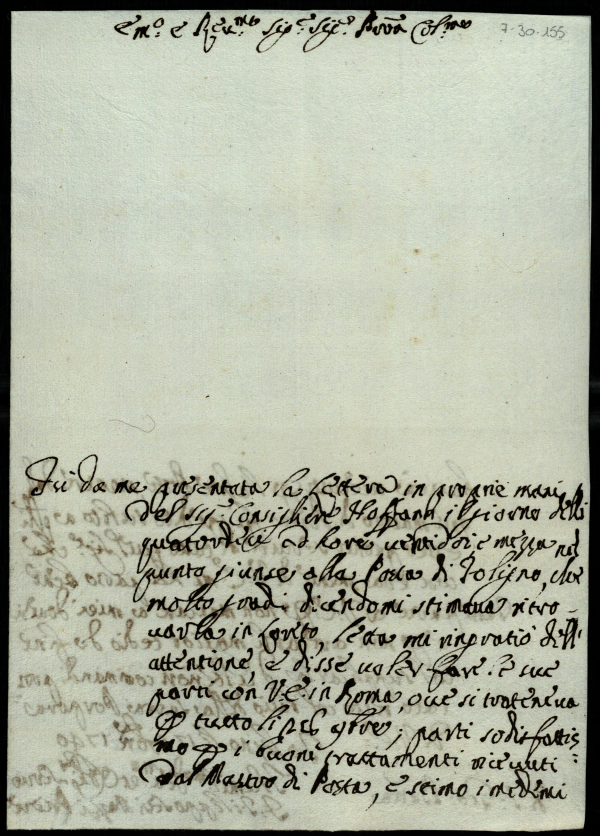 Em.o e Rev.mo Sig.e Sig.e Prone Col.mo
7-30-155
Fù da me presentata la lettera in proprie mani
del Sig.e Consigliere Hoffann il giorno delli
quatordeci ad hore ventidoi e mezza nel
punto giunse alla Posta di Foligno, che
molto gradì dicendomi stimava ritro-
varla in Loreto, e mi ringratiò dell'
attentione, e disse voler fare le sue
parti con V.E. in Roma, ove si trateneva
p tutto li 9bre; partì sodisfattis-
mo p i buoni trattamenti ricevuti
dal Mastro di Posta, e stimo i medemi